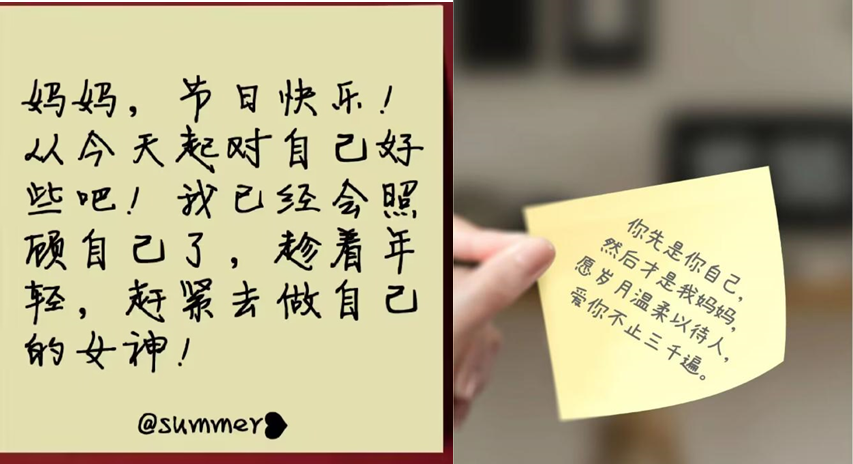 妈妈，节日快乐！
从今天起对自己好
些吧！我已经会照
顾自己了，趁着年
轻，赶紧去做自己
的女神！
@summer
你先是你自己，
然后才是我妈妈，
愿岁月温柔以待人，
爱你不止三千遍。